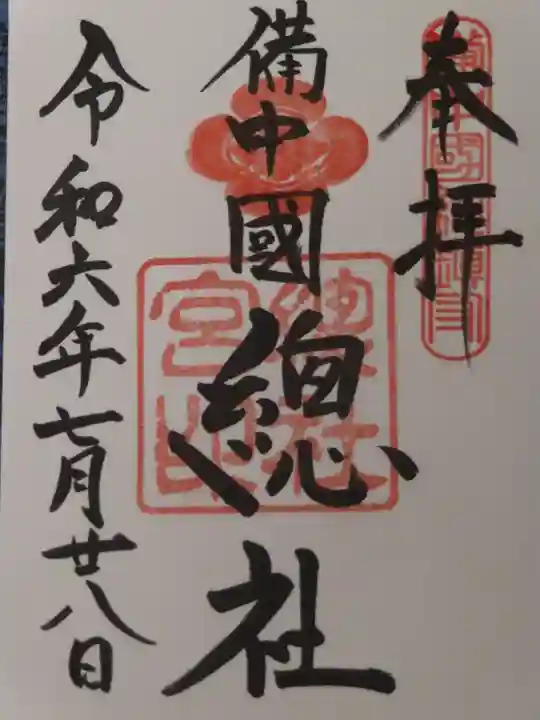 奉拝
備中國總社
總社宮印
令和六年七月廿八日